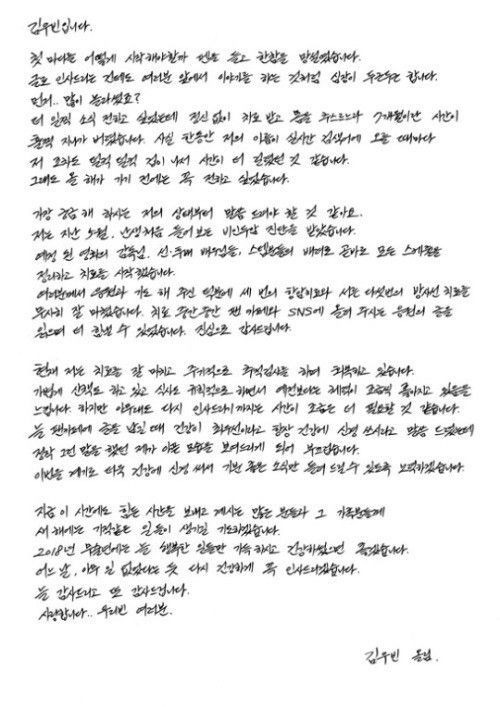 김우빈입니다.
첫 마디를 어떻게 시작해야할까 펜을 들고 한참을 망설였습니다.
글로 인사드리는 건데도 여러분 앞에서 이야기를 하는 것처럼 심장이 두근두근 합니다.
먼저.. 많이 놀라셨죠?
더 일찍 소식 전하고 싶었는데 정신 없이 치료 받고 몸을 추스르느라 7개월이란 시간이
훌쩍 지나가 버렸습니다. 사실 한동안 저의 이름이 실시간 검색어에 오를 때마다
저 조차도 덜컥 덜컥 겁이 나서 시간이 더 걸렸던 것 같습니다.
그래도 올 해가 가기 전에는 꼭 전하고 싶었습니다.
가장 궁금해 하시는 저의 상태부터 말씀 드려야 할 것 같아요.
저는 지난 5월, 난생처음 들어보는 비인두암 진단을 받았습니다.
예정 된 영화의 감독님, 선·후배 배우님들, 스텝분들의 배려로 곧바로 모든 스케줄을
정리하고 치료를 시작했습니다.
여러분께서 응원과 기도 해 주신 덕분에 세 번의 항암치료와 서른 다섯번의 방사선 치료를
무사히 잘 마쳤습니다. 치료 중간중간 팬 카페와 SNS에 올려 주시는 응원의 글을
읽으며 더 힘낼 수 있었습니다. 진심으로 감사드립니다.
현재 저는 치료를 잘 마치고 주기적으로 추적검사를 하며 회복하고 있습니다.
가볍게 산책도 하고 있고 식사도 규칙적으로 하면서 예전보다는 체력이 조금씩 좋아지고 있음을
느낍니다. 하지만 아무래도 다시 인사드리기까지는 시간이 조금은 더 필요할 것 같습니다.
늘 팬카페에 글을 남길 때 건강이 최우선이라고 항상 건강에 신경 쓰시라고 말씀 드렸는데
정작 그런 말을 했던 제가 아픈 모습을 보여드리게 되어 부끄럽습니다.
이번을 계기로 더욱 건강에 신경 써서 기쁘고 좋은 소식만 들려 드릴 수 있도록 노력하겠습니다.
지금 이 시간에도 힘든 시간을 보내고 계시는 많은 분들과 그 가족분들께
새 해에는 기적같은 일들이 생기길 기도하겠습니다.
2018년 무술년에는 늘 행복한 일들만 가득하시고 건강하셨으면 좋겠습니다.
어느 날, 아무 일 없었다는 듯 다시 건강하게 꼭 인사드리겠습니다.
늘 감사드리고 또 감사드립니다.
사랑합니다.. 우리빈 여러분.
김우빈 올림.